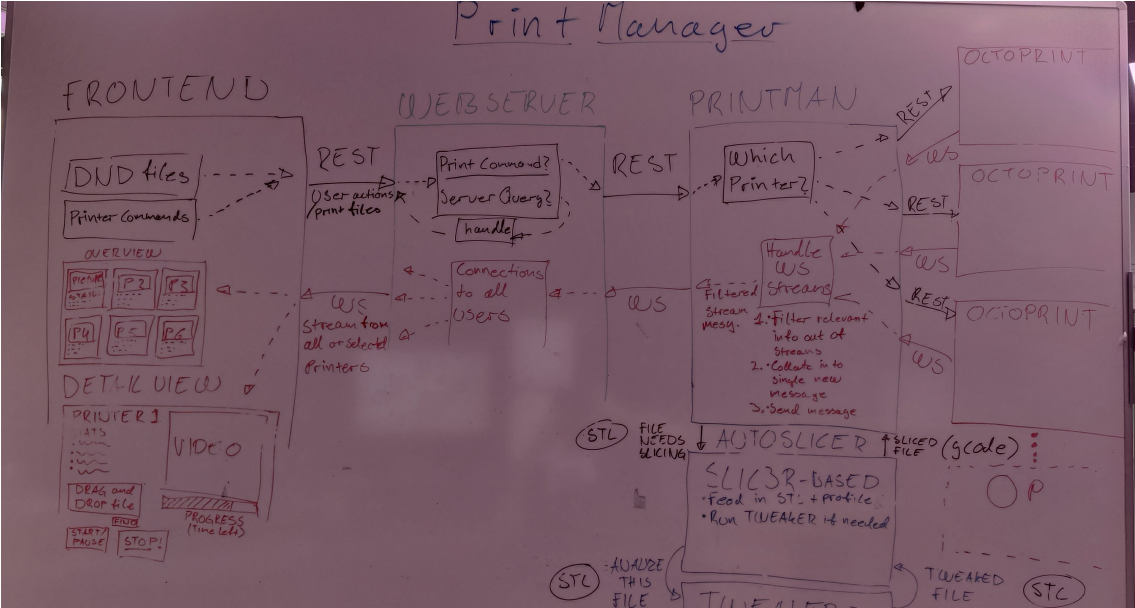 Print Manager
FRONTEND
DND files
Printer Commands
OVERVIEW
Picture
P2
P3
P4
P5
P6
DETAIL VIEW
PRINTER 1
VIDEO
DRAG and
DROP file
FIND
START/
PAUSE
STOP!
PROGRESS
(Time left)
REST
User actions
/print files
WS
Stream from
all or selected
Printers
WEBSERVER
Print Command?
Server Query?
handle
Connections
to all
users
REST
WS
PRINTMAN
Which
Printer?
Handle
WS
Streams
Filtered
Stream
mesg.
1. Filter relevant
info out of
Streams
2. Collate in to
single new
message
3. Send message
REST
WS
OCTOPRINT
REST
WS
OCTOPRINT
REST
WS
OCTOPRINT
STL
FILE
NEEDS
SLICING
AUTOSLICER
SLICED
FILE
(gcode)
SLIC3R-BASED
• Feed in STL + profile
• Run TWEAKER if needed
P
STL
ANALYZE
THIS
FILE
TWEAKER
TWEAKED
FILE
STL